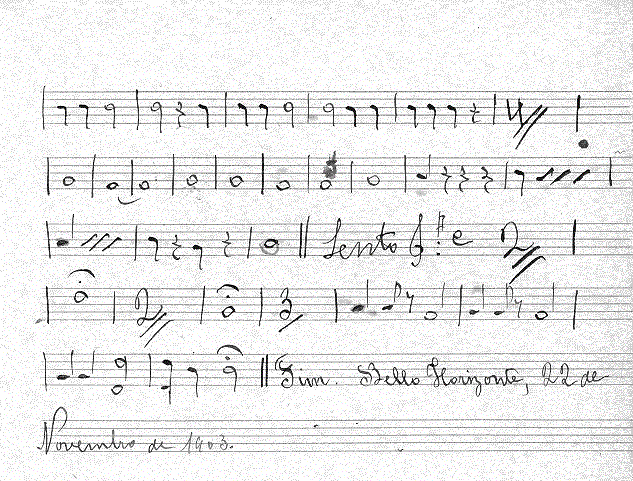 4
Lento C 2
2 3
Fim. Bello Horizonte, 22 de
Novembro de 1903.